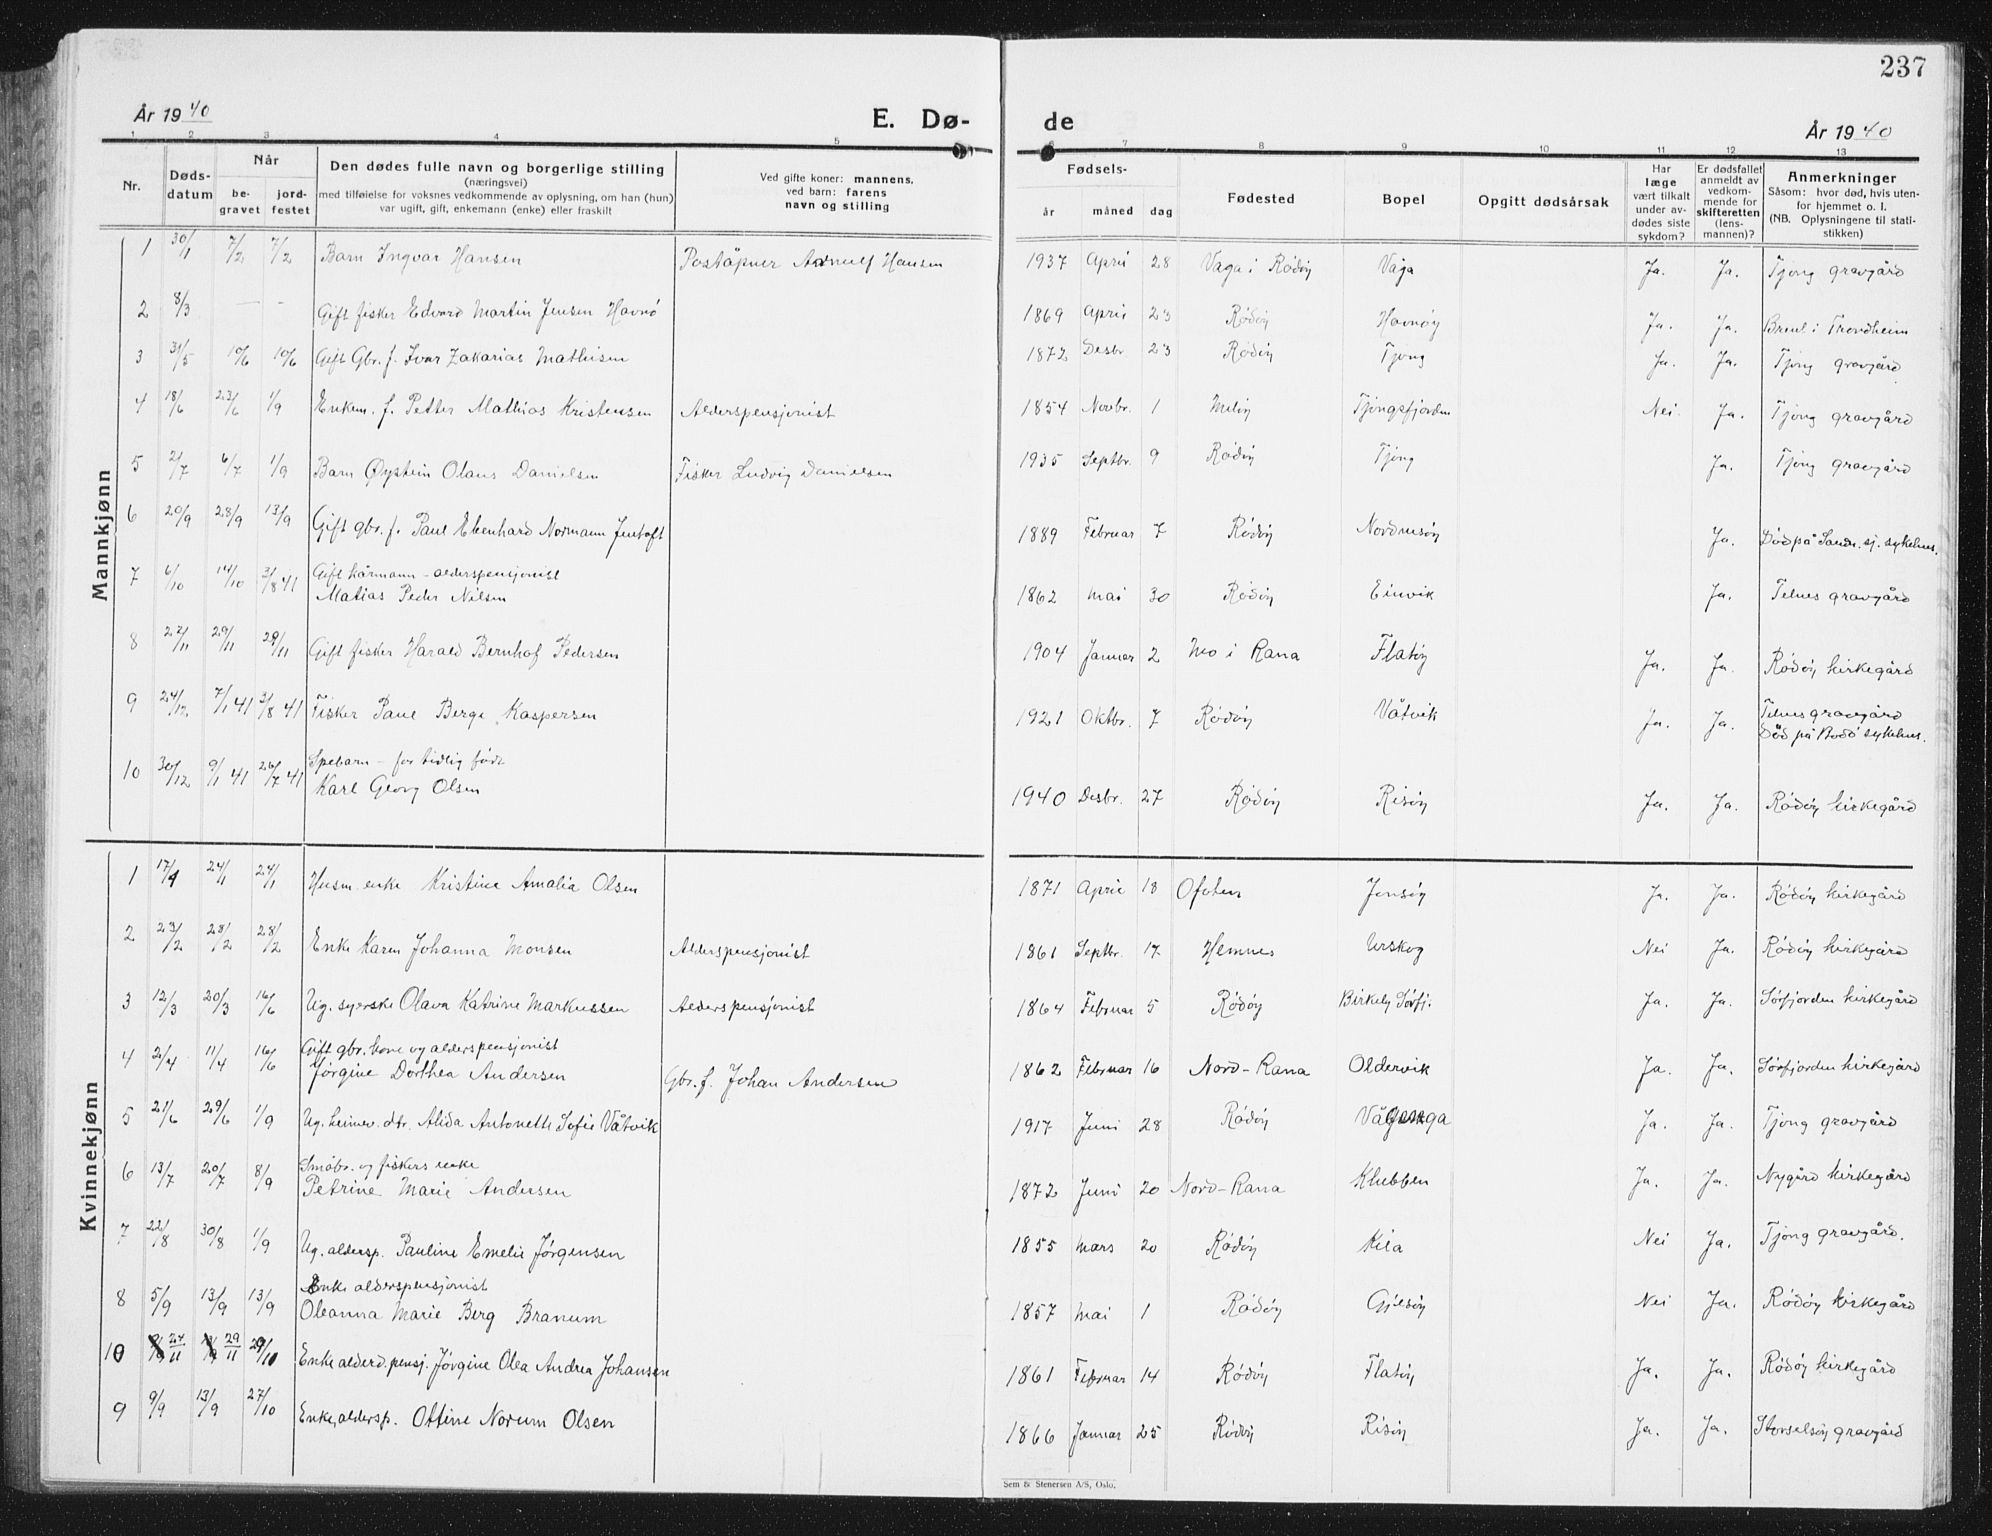 237
År 1940 E. Dø- de År 1940
1 2 3 4 5 6 7 8 9 10 11 12 13
Nr.
Døds-datum
Når
be-gravet
jord-festet
Den dødes fulle navn og borgerlige stilling
(næringsvei)
med tilføielse for voksnes vedkommende av oplysning, om han (hun)
var ugift, gift, enkemann (enke) eller fraskilt
Ved gifte koner: mannens,
ved barn: farens
navn og stilling
Fødsels-
år måned dag
Fødested
Bopel
Opgitt dødsårsak
Har
læge
vært tilkalt
under av-
dødes siste
sykdom?
Er dødsfallet
anmeldt av
vedkom-
mende for
skifteretten
(lens-
mannen)?
Anmerkninger
Såsom: hvor død, hvis uten-
for hjemmet o. l.
(NB. Oplysningene til stati-
stikken)
Mannkjønn
1 30/1 7/2 7/2 Barn Ingvar Hansen Poståpner Arnulf Hansen 1937 April 28 Våga i Rødøy Våga Ja. Ja. Tjong gravgård
2 8/3 — - Gift fisker Edvard Martin Jensen Havnø 1869 April 23 Rødøy Havnøy Ja. Ja. Brent i Trondheim
3 31/5 10/6 10/6 Gift Gbr. f. Ivar Zakarias Mathisen 1872 Desbr 23 Rødøy Tjong Ja. Ja. Tjong gravgård
4 18/6 23/6 1/9 Enkem. f. Petter Mathias Kristensen Alderspensjonist 1854 Novbr. 1 Meløy Tjongsfjorden Nei. Ja. Tjong gravgård
5 2/7 6/7 1/9 Barn Øystein Olaus Danielsen Fisker Ludvig Danielsen 1935 Septbr. 9 Rødøy Tjong Ja. Tjong gravgård
6 20/9 28/9 13/9 Gift gbr. f. Paul Ebenhard Normann Jentoft 1889 Februar 7 Rødøy Nordnesøy Ja. Død på Sandn. sj. sykehus.
7 6/10 14/10 3/8 41 Gift kårmann - alderspensjonist
Matias Peder Nilsen 1862 Mai 30 Rødøy Einvik Ja. Telnes gravgård
8 22/11 29/11 29/11 Gift fisker Harald Bernhof Pedersen 1904 Januar 2 Mo i Rana Flatøy Ja. Ja. Rødøy kirkegård
9 24/12 7/1 41 3/8 41 Fisker Paul Berge Kaspersen 1921 Oktbr. 7 Rødøy Våtvik Ja. Ja. Telnes gravgård
Død på Bodø sykehus.
10 30/12 9/1 41 26/7 41 Spebarn - for tidlig født
Karl Georg Olsen 1940 Desbr. 27 Rødøy Risøy Ja. Ja. Rødøy kirkegård
Kvinnekjønn
1 17/1 24/1 24/1 Husm. enke Kristine Amalia Olsen 1871 April 18 Ofoten Jensøy Ja. Ja. Rødøy kirkegård
2 23/2 28/2 28/2 Enke Karen Johanna Monsen Alderspensjonist 1861 Septbr. 17 Hemnes Urskog Nei Ja. Rødøy kirkegård
3 12/3 20/3 16/6 Ug. syerske Olava Katrine Markussen Alderspensjonist 1864 Februar 5 Rødøy Birkely Sørfj. Ja. Ja. Sørfjorden kirkegård
4 2/4 11/4 16/6 Gift gbr. kone og alderspensjonist
Jørgine Dorthea Andersen Gbr. f. Johan Andersen 1862 Februar 16 Nord-Rana Oldervik Ja. Ja. Sørfjorden kirkegård
5 21/6 29/6 1/9 Ug. heimev. dtr. Alida Antonette Sofie Våtvik 1917 Juni 28 Rødøy Ja. Ja. Tjong gravgård
6 13/7 20/7 8/9 Småbr. og fiskers enke
Petrine Marie Andersen 1872 Juni 20 Nord-Rana Klubben Ja. Ja. Nygård kirkegård
7 22/8 30/8 1/9 Ug. aldersp. Pauline Emelie Jørgensen 1855 Mars 20 Rødøy Kila Nei Ja. Tjong gravgård.
8 5/9 13/9 13/9 Enke alderspensjonist
Oleanna Marie Berg Branum 1857 Mai 1 Rødøy Gjesøy Nei Ja. Rødøy kirkegård
10 24/11 29/11 29/10 Enke alderd. pensj. Jørgine Olea Andrea Johansen 1861 Februar 14 Rødøy Flatøy Ja. Ja. Rødøy kirkegård
9 9/9 13/9 27/10 Enke, aldersp. Ottine Norum Olsen 1866 Januar 25 Rødøy Risøy Ja. Ja. Storselsøy gravgård
Sem & Stenersen A/S, Oslo.